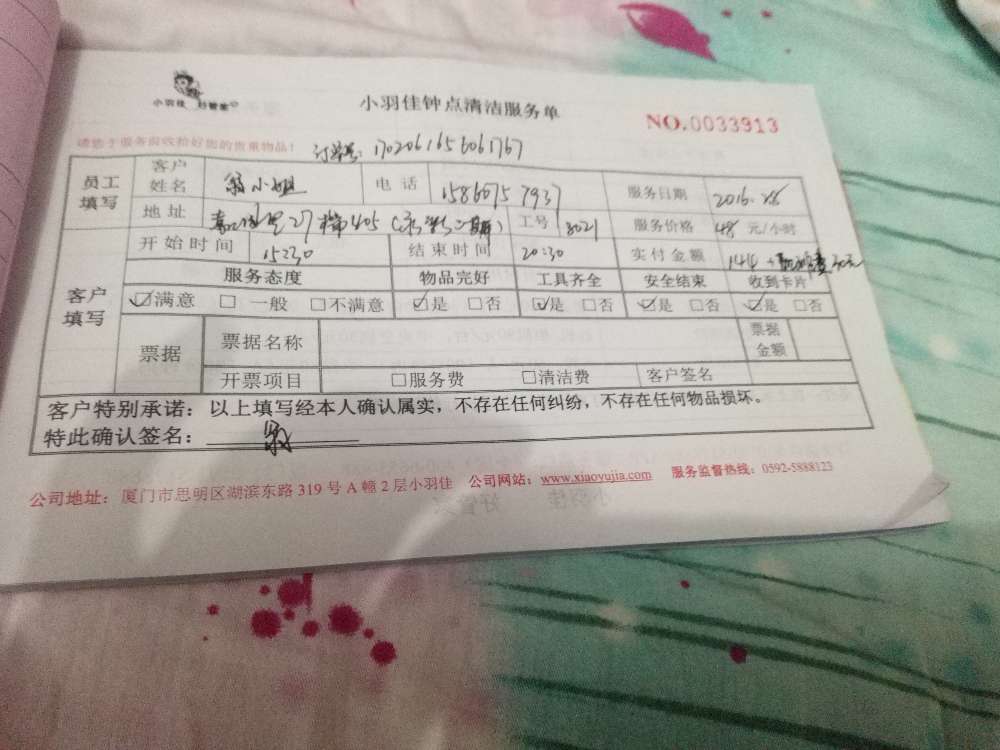 小羽佳 好管家
小羽佳钟点清洁服务单
NO.0033913
请您于服务前收拾好您的贵重物品!
订单号: 1702061656061767
员工填写 客户姓名 翁小姐 电话 服务日期 2016.
地址 27 405 工号 8021 服务价格 48 元/小时
开始时间 15:30 结束时间 20:30 实付金额 144 +
客户填写 服务态度 物品完好 工具齐全 安全结束 收到卡片
☑满意 □一般 □不满意 ☑是 □否 ☑是 □否 ☑是 □否 ☑是 □否
票据 票据名称 票据金额
开票项目 □服务费 □清洁费 客户签名
客户特别承诺:以上填写经本人确认属实,不存在任何纠纷,不存在任何物品损坏。
特此确认签名:
公司地址:厦门市思明区湖滨东路319号A幢2层小羽佳 公司网站:www.xiaoyujia.com 服务监督热线:0592-5888123